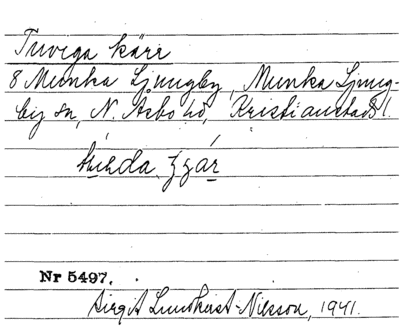 Tuviga kärr
8 Munka Ljungby, Munka Ljung-
by sn, N. Åsbo hd, Kristianstads l.
kär
Nr 5497.
Birgit Lundkvist-Nilsson, 1941.